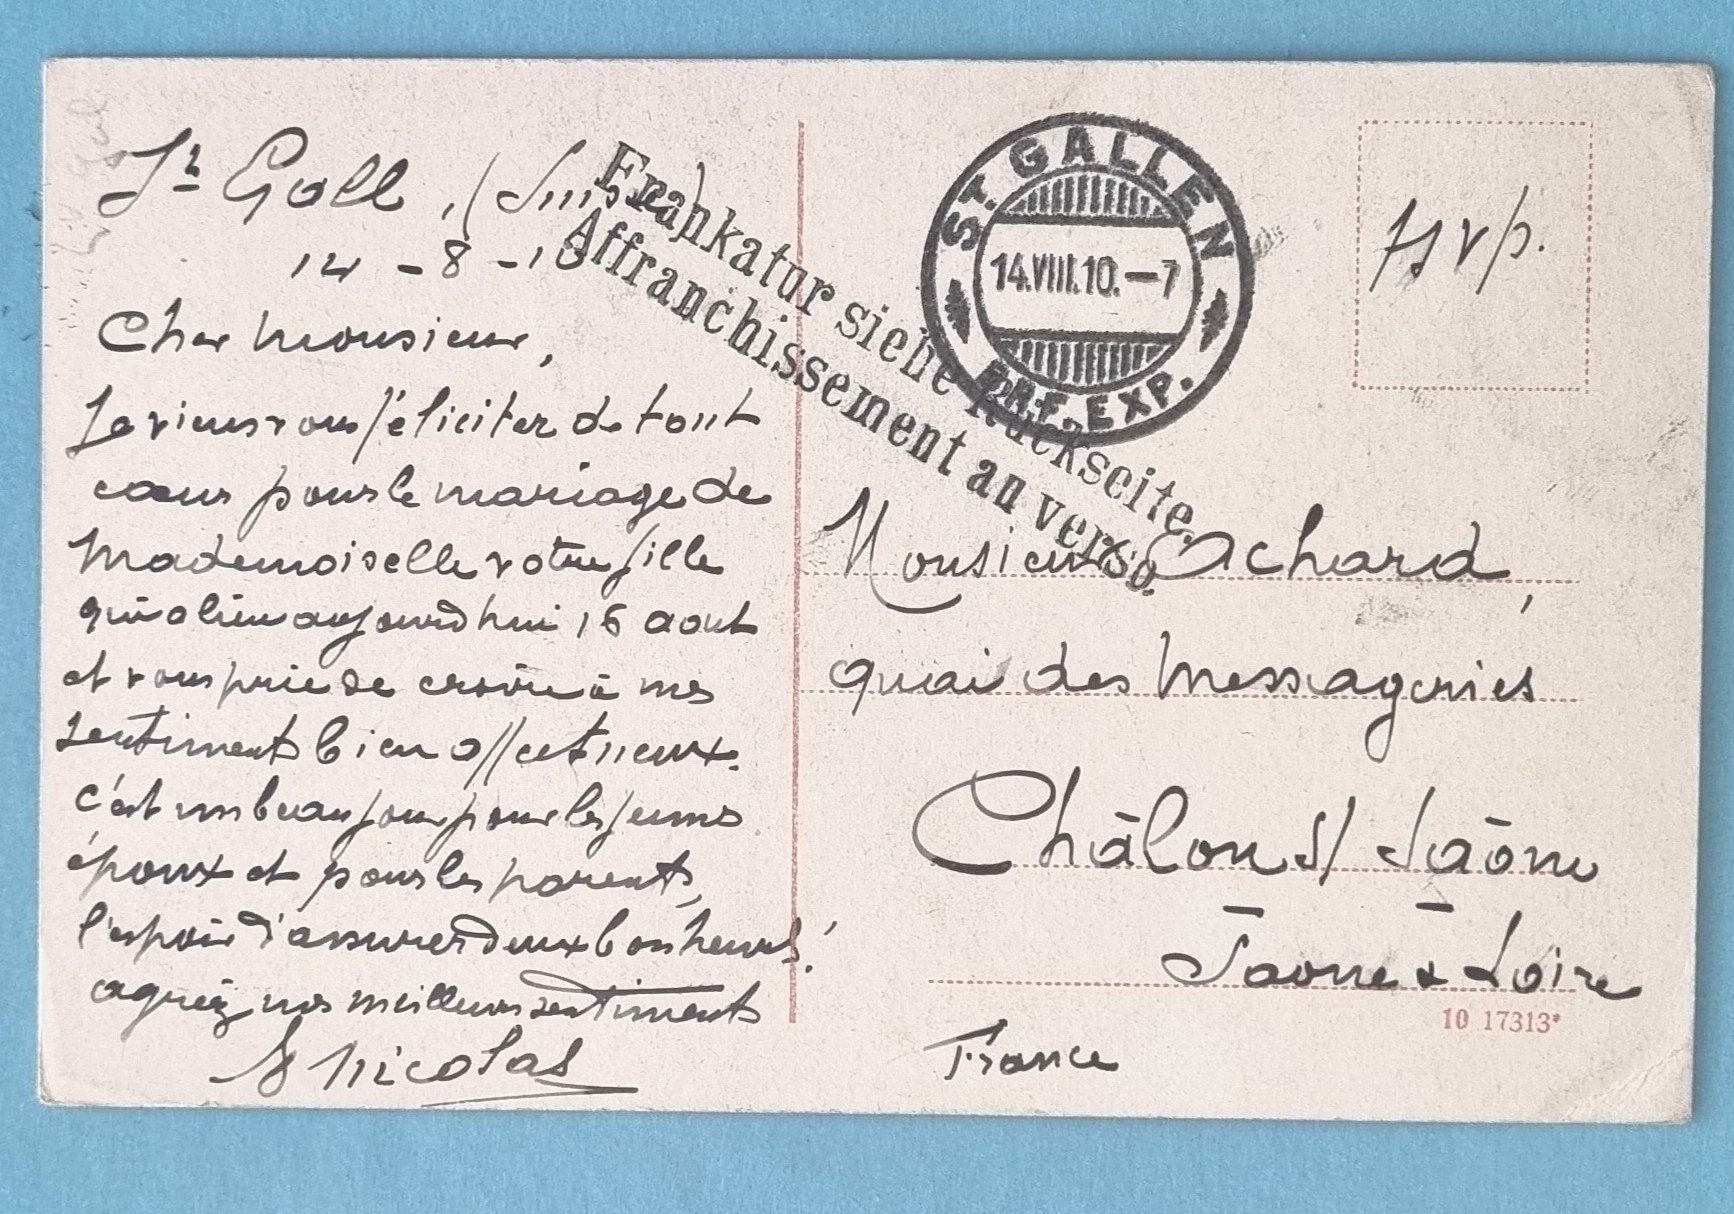 St Gall, (Suisse)
14 - 8 - 10
Cher Monsieur,
Je viens vous féliciter de tout
cœur pour le mariage de
Mademoiselle votre fille
qui a lieu aujourd'hui 16 aout
et vous prie de croire à mes
sentiments bien affectueux.
c'est un beau jour pour les jeunes
époux et pour les parents,
l'espoir d'assurer deux bonheurs!
agréez mes meilleurs sentiments
Nicolas
Frankatur siehe Rückseite.
Affranchissement au verso.
ST. GALLEN
14.VIII.10.–7
BRF. EXP.
Monsieur Achard,
quai des Messageries
Châlon s/ Saône
Saone & Loire
France
10 17313*